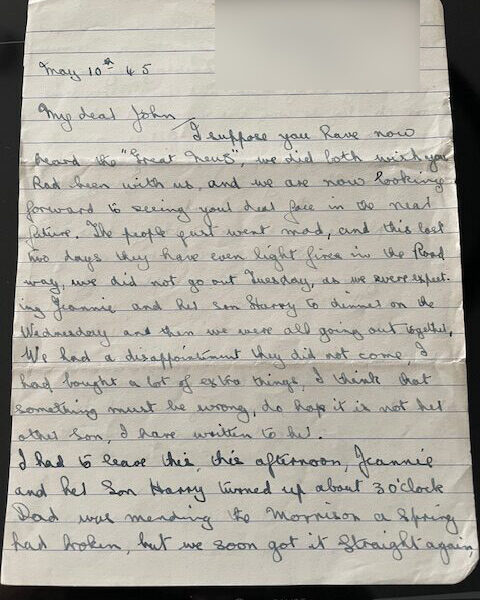 May 10th 45
My dear John
I suppose you have now
heard the "Great News", we did both wish you
had been with us, and we are now looking
forward to seeing your dear face in the near
future. The people just went mad, and this last
two days they have even light fires in the Road
way, we did not go out Tuesday, as we were expect-
ing Jeannie and her son Harry to dinner on the
Wednesday and then we were all going out together,
We had a disappointment they did not come, I
had bought a lot of extra things, I think that
something must be wrong, do hope it is not her
other Son, I have written to her.
I had to leave this, this afternoon, Jeannie
and her Son Harry turned up about 3 o'clock
Dad was mending the Morrison a Spring
had broken, but we soon got it Straight again,